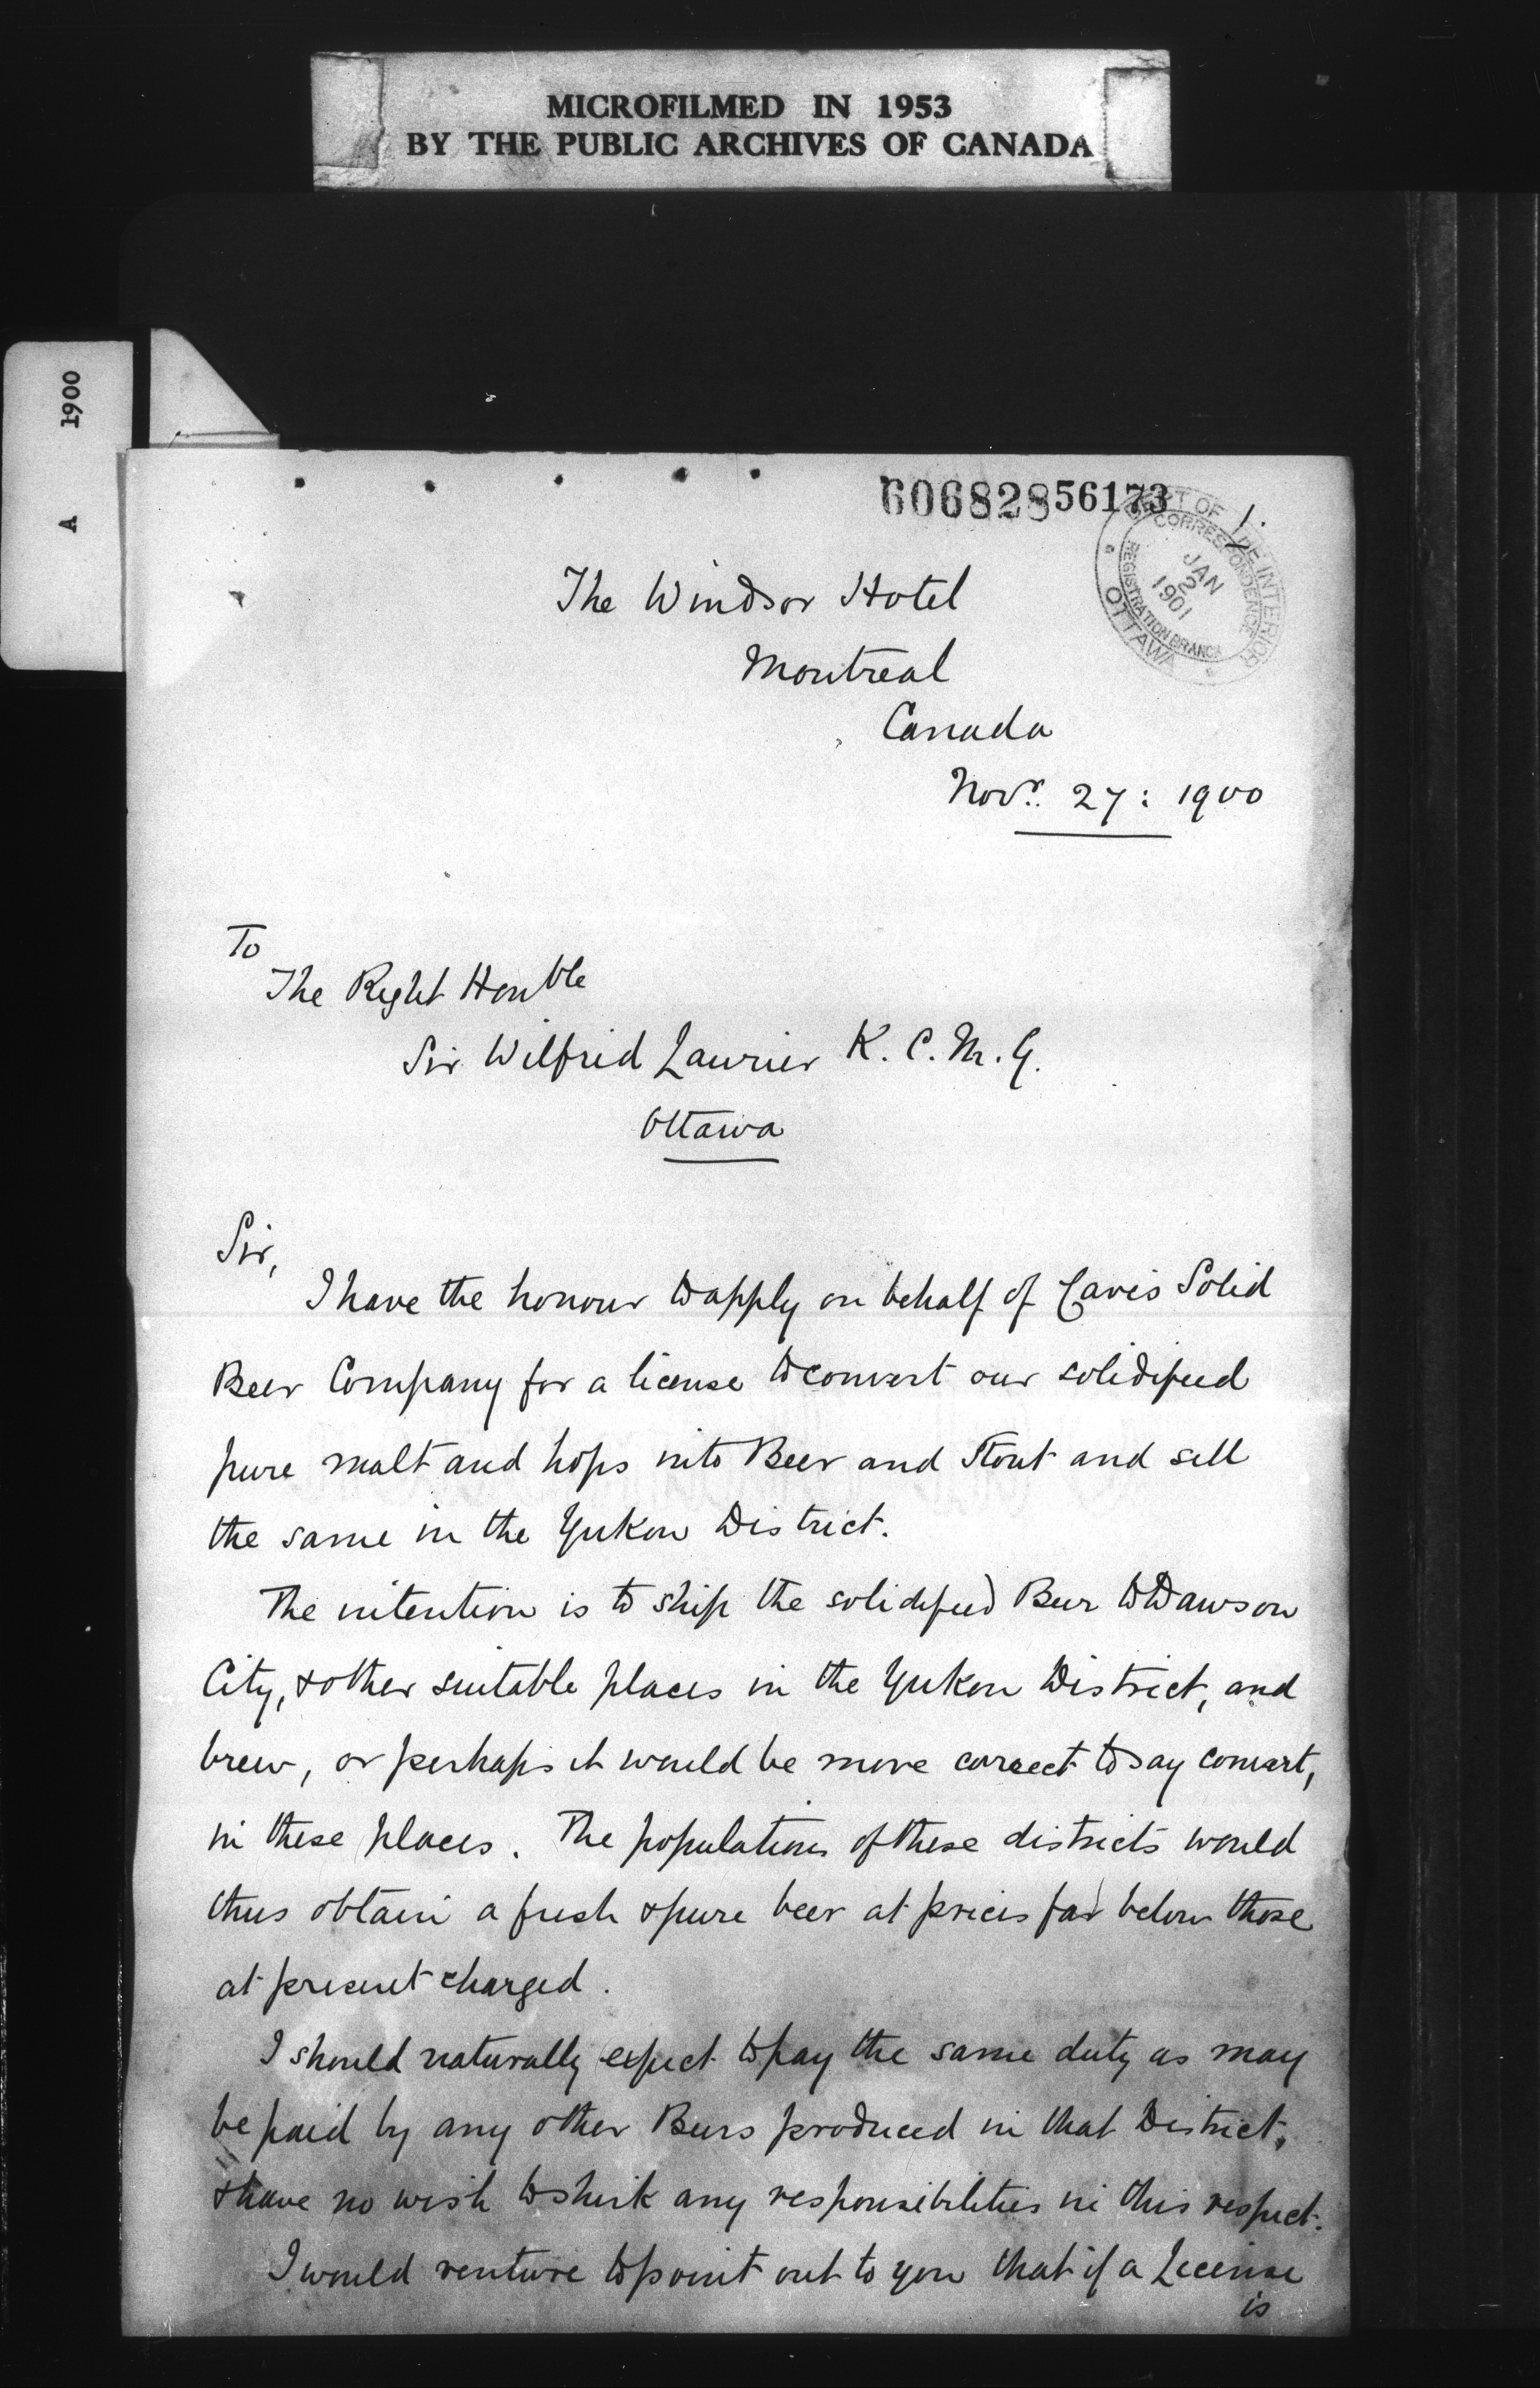 MICROFILMED IN 1953
BY THE PUBLIC ARCHIVES OF CANADA
1900
A
606828 56173
1.
DEPT OF THE INTERIOR
CORRESPONDENCE
JAN
2
1901
REGISTRATION BRANCH
OTTAWA
The Windsor Hotel
Montreal
Canada
Novr. 27: 1900
To
The Right Honble
Sir Wilfrid Laurier K.C.M.G.
Ottawa
Sir,
I have the honour to apply on behalf of Solid
Beer Company for a license to convert our solidified
pure malt and hops into Beer and Stout and sell
the same in the Yukon District.
The intention is to ship the solidified Beer to Dawson
City, & other suitable places in the Yukon District, and
brew, or perhaps it would be more correct to say convert,
in these places. The populations of these districts would
thus obtain a fresh & pure beer at prices far below those
at present charged.
I should naturally expect to pay the same duty as may
be paid by any other Beers produced in that District,
& have no wish to shirk any responsibilities in this respect.
I would venture to point out to you that if a License
is